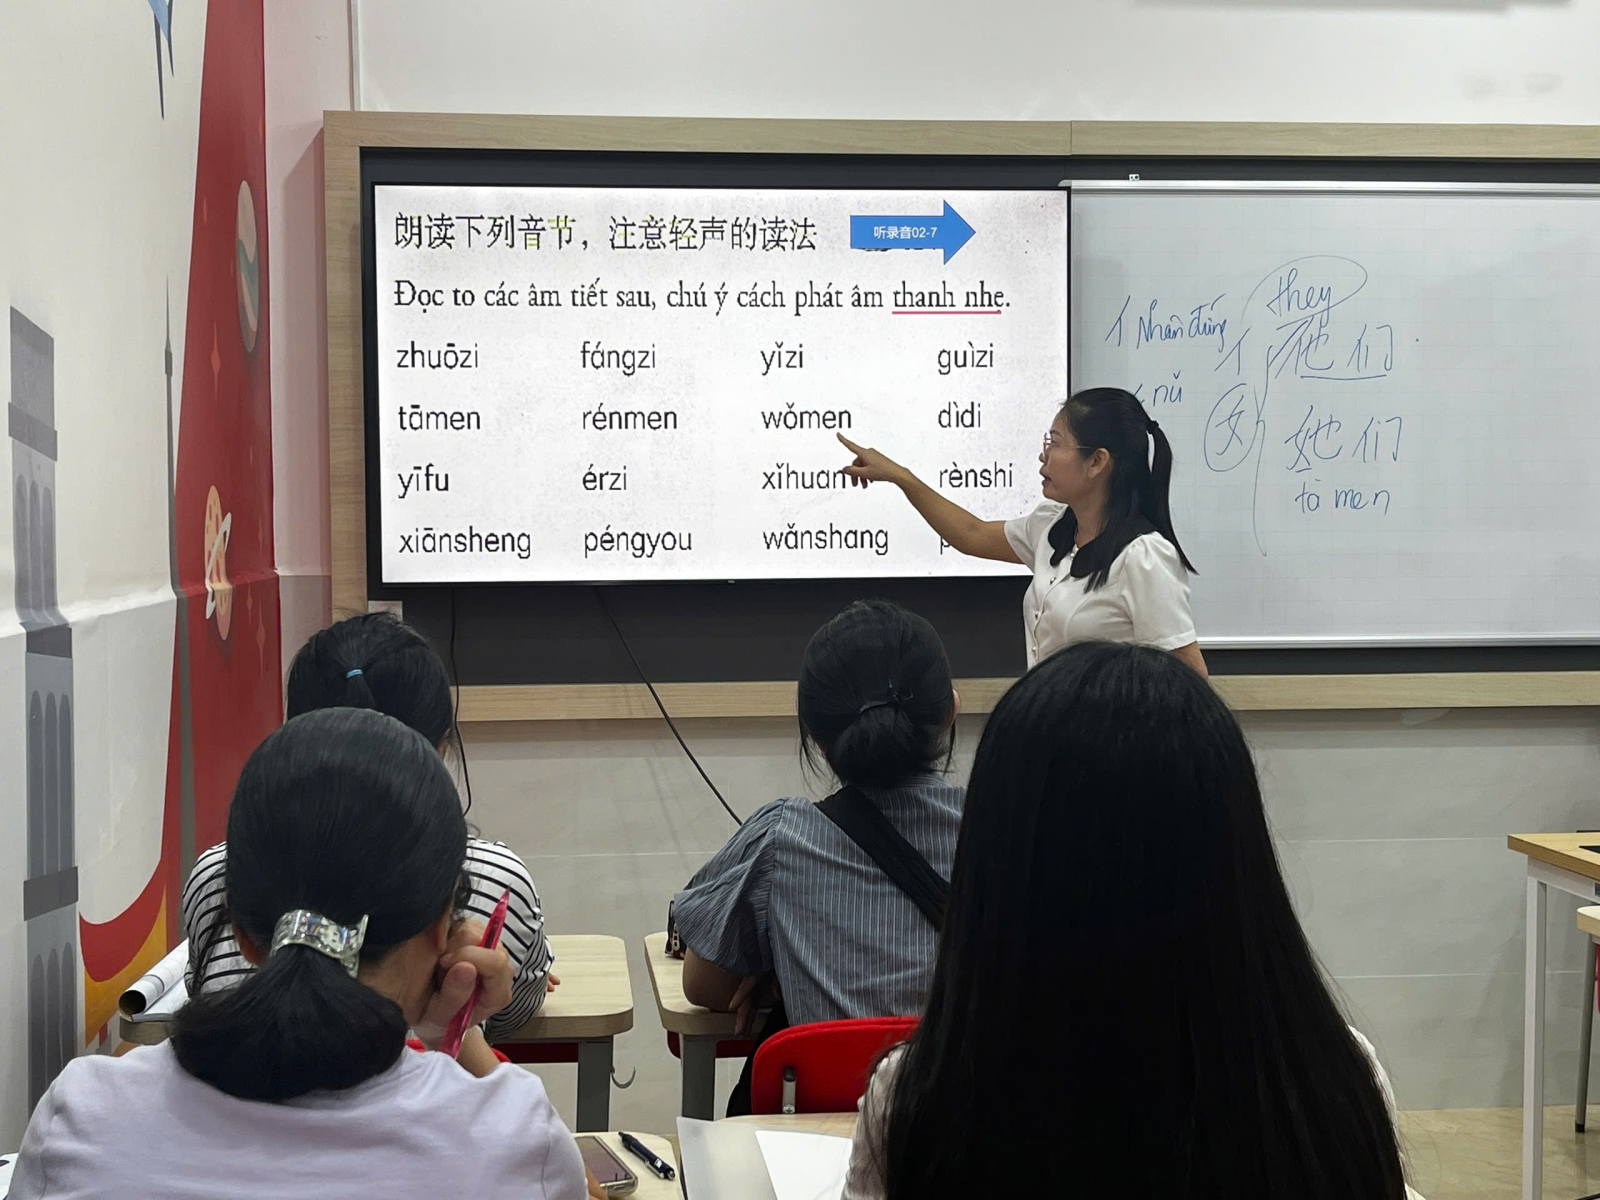 朗读下列音节，注意轻声的读法
听录音02-7
Đọc to các âm tiết sau, chú ý cách phát âm thanh nhẹ.
zhuōzi fángzi yǐzi guìzi
tāmen rénmen wǒmen dìdi
yīfu érzi xǐhuan rènshi
xiānsheng péngyou wǎnshang
they
亻 Nhân đứng
亻 他们
nǚ
女 她们
tā men